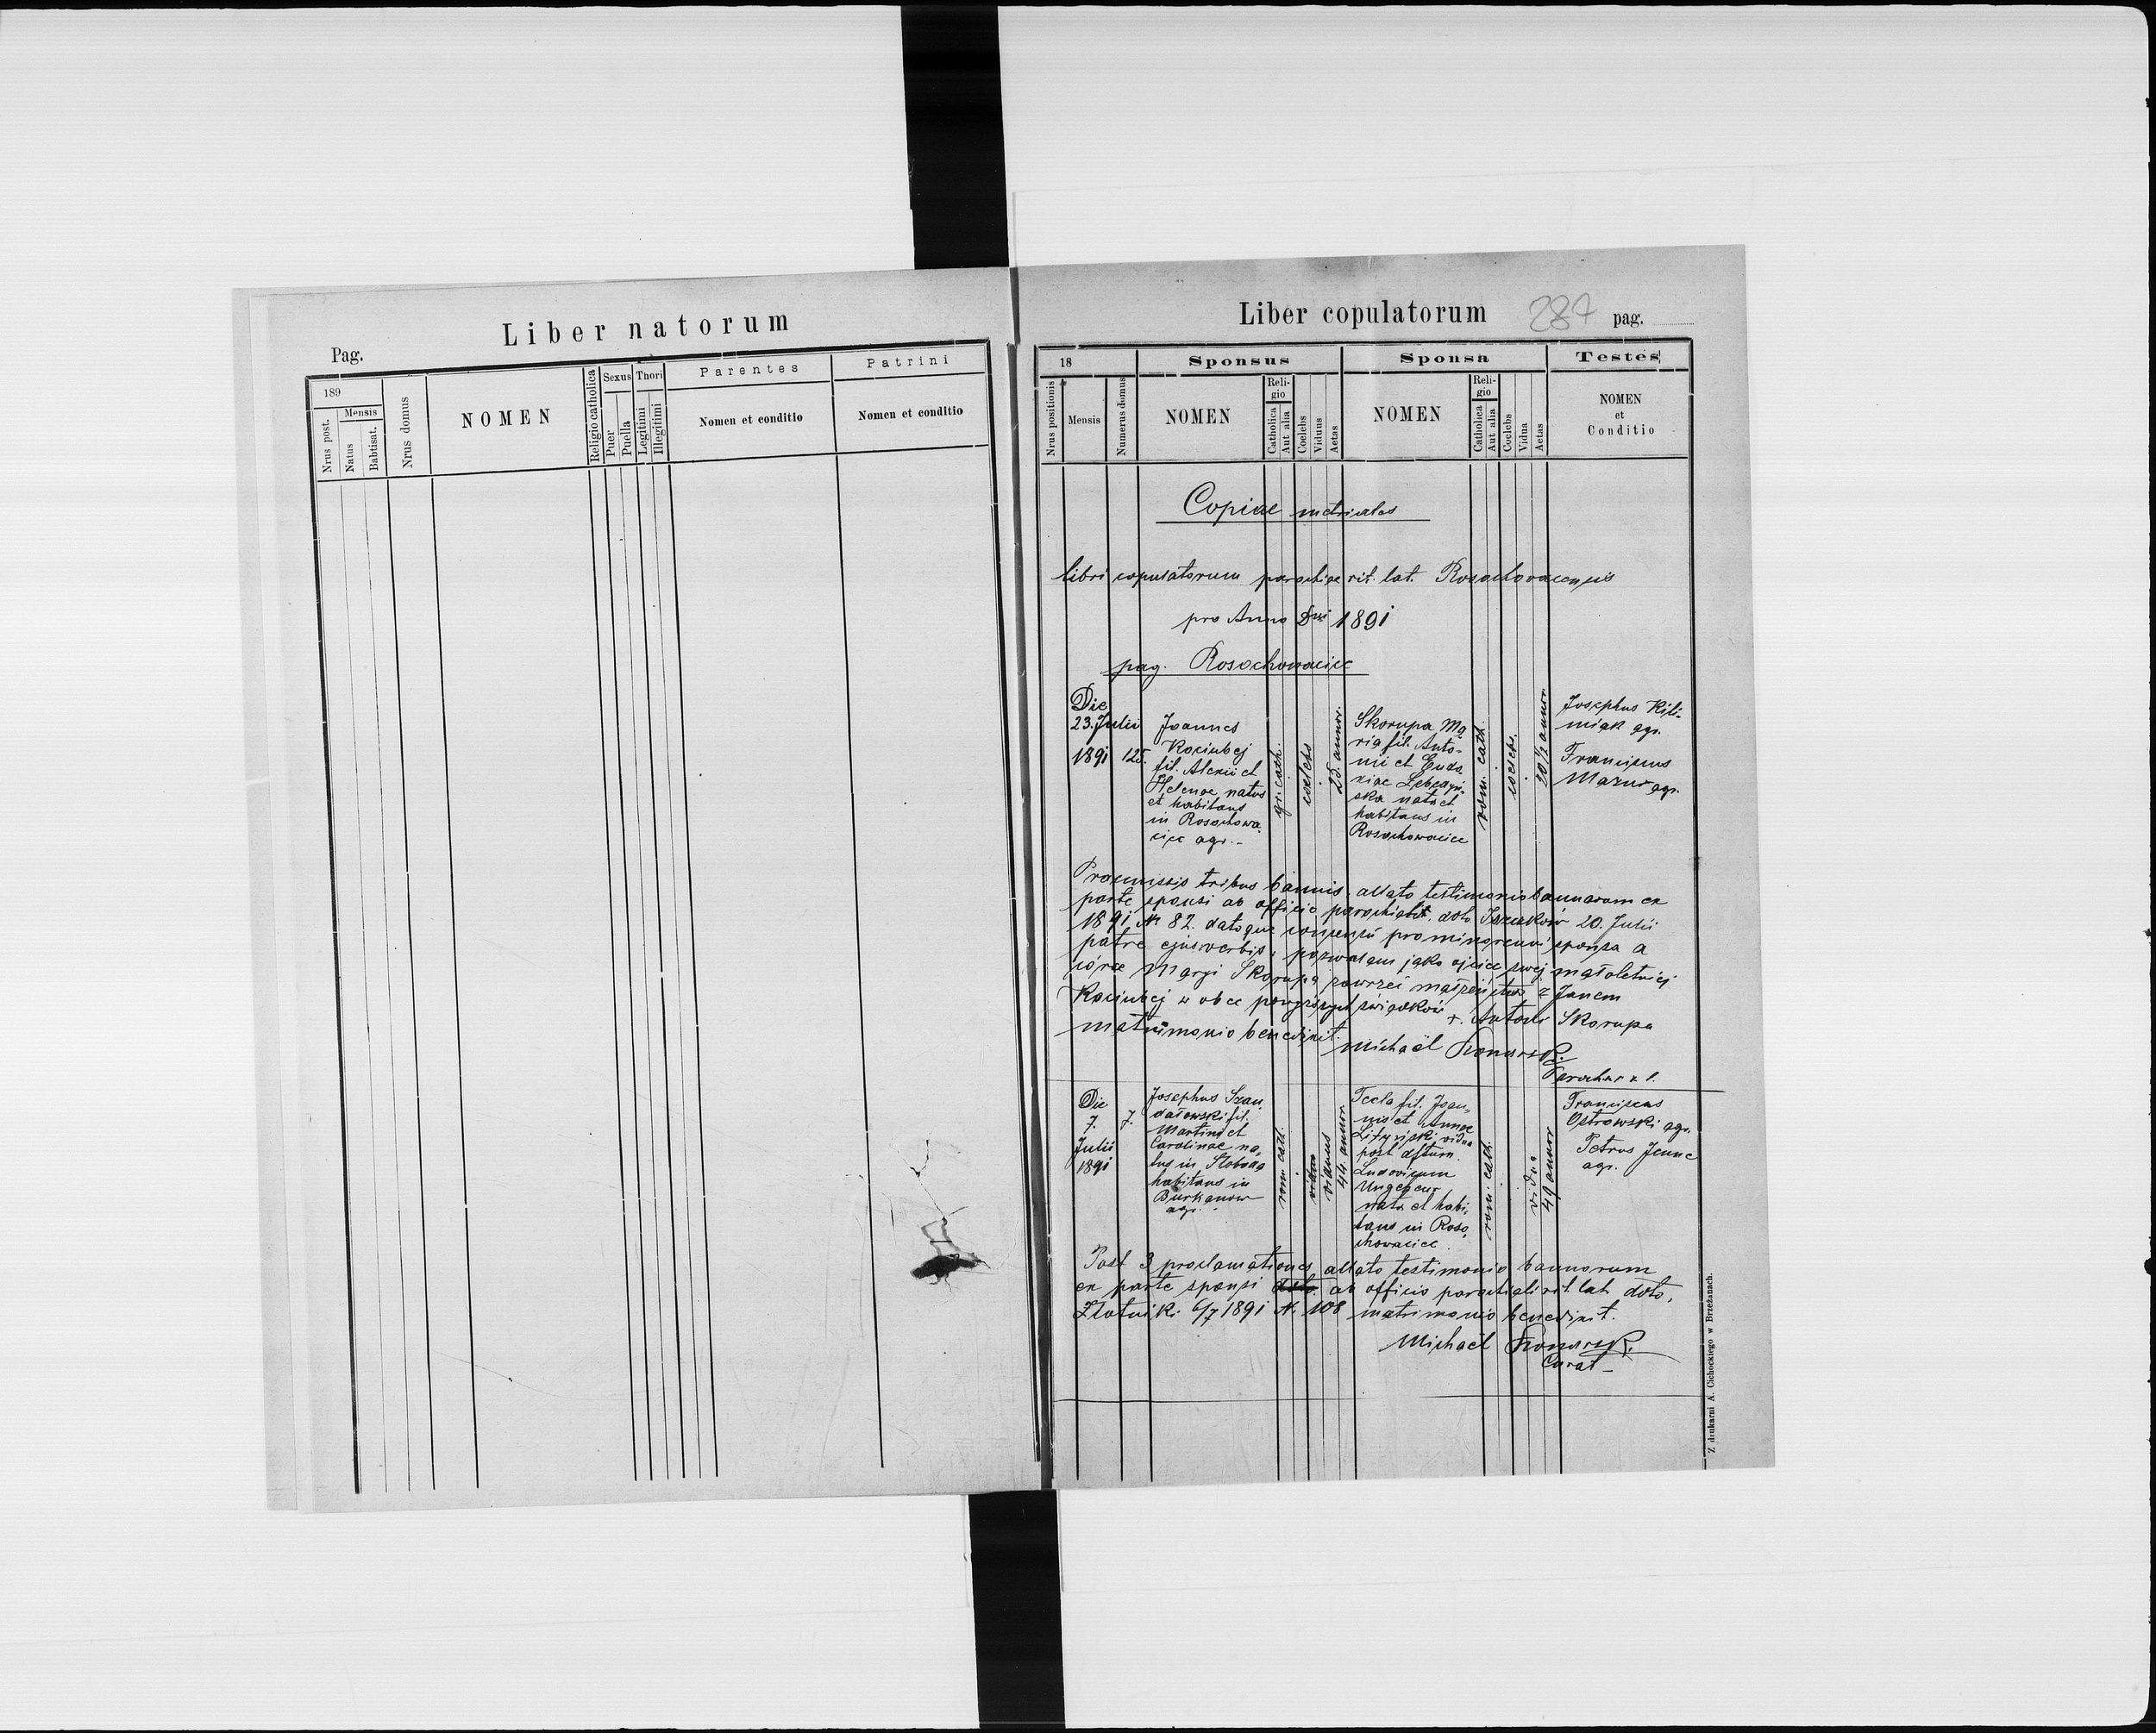 Liber natorum
Pag.
189
Mensis
Nrus post.
Natus
Babtisat.
Nrus domus
NOMEN
Religio catholica
Sexus
Puer
Puella
Thori
Legitimi
Illegitimi
Parentes
Nomen et conditio
Patrini
Nomen et conditio
Liber copulatorum 287 pag.
18
Nrus positionis
Mensis
Numerus domus
Sponsus
NOMEN
Reli-
gio
Catholica
Aut alia
Coelebs
Viduus
Aetas
Sponsa
NOMEN
Reli-
gio
Catholica
Aut alia
Coelebs
Vidua
Aetas
Testes
NOMEN
et
Conditio
Copiae metricales
libri copulatorum parochiae rit. lat. Rosochovacensis
pro Anno Dni 1891
pag. Rosochowaciec
Die
23. Julii
1891
125.
Joannes
Kociubej
fil. Alexii et
Helenae natus
et habitans
in Rosochowa-
ciec agr. -
gr. cath.
coelebs
25 annor.
Skorupa Ma
ria fil. Anto-
nii et Eudo
xiae
nata et
habitans in
Rosochowaciec
rom. cath.
coelebs.
20 1/2 annor.
Josephus Kili-
miak agr.
Franciscus
Mazur agr.
Praemissis tribus bannis, allato testimonio bannorum ex
parte sponsi ab officio parochiali ddto 20. Julii
1891 N. 82. datoque consensu pro minorenni sponsa a
patre ejus verbis: pozwalam jako ojciec swej małoletniej
córce Maryi Skorupa zawrzeć małżeństwo z Janem
Kociubej w obec powyższych świadków +. Antoni Skorupa
matrimonio benedixit.
Michaël Komarski
Parochus r. l.
Die
7.
Julii
1891
7.
Josephus Szan-
dałowski fil.
Martini et
Carolinae na-
tus in Słoboda
habitans in
Burkanow
agr. -
rom. cath.
viduus
44 annor.
Tecla fil. Joan-
nis et Annae
vidua
post dftum
Ludovicum
Ungeheuer
nata et habi-
tans in Roso-
chowaciec.
rom. cath.
vidua
49 annor
Franciscus
Ostrowski agr.
Petrus
agr.
Post 3 proclamationes allato testimonio bannorum
ex parte sponsi ab officio parochiali rit. lat. ddto.
Złotniki 6/7 1891 N. 108 matrimonio benedixit.
Michaël Komarski
Curat -
Z drukarni A. Cichockiego w Brzeżanach.